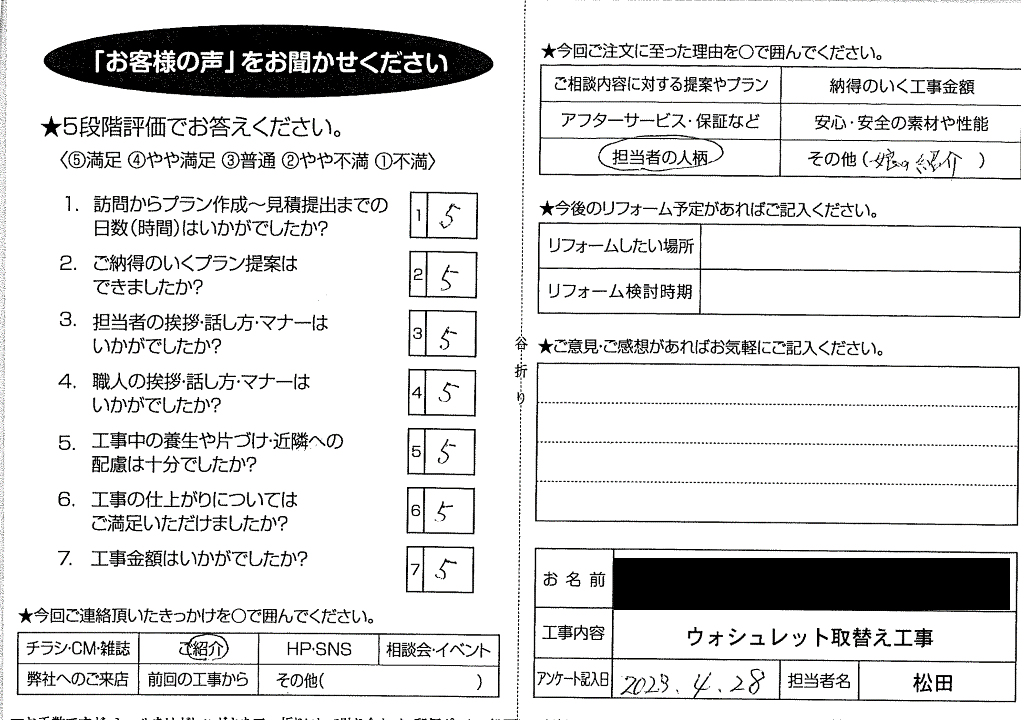 「お客様の声」をお聞かせください
★5段階評価でお答えください。
〈⑤満足 ④やや満足 ③普通 ②やや不満 ①不満〉
1. 訪問からプラン作成〜見積提出までの
日数(時間)はいかがでしたか?
1 5
2. ご納得のいくプラン提案は
できましたか?
2 5
3. 担当者の挨拶・話し方・マナーは
いかがでしたか?
3 5
4. 職人の挨拶・話し方・マナーは
いかがでしたか?
4 5
5. 工事中の養生や片づけ・近隣への
配慮は十分でしたか?
5 5
6. 工事の仕上がりについては
ご満足いただけましたか?
6 5
7. 工事金額はいかがでしたか?
7 5
★今回ご連絡頂いたきっかけを○で囲んでください。
チラシ・CM・雑誌 ご紹介 HP・SNS 相談会・イベント
弊社へのご来店 前回の工事から その他( )
谷折り
★今回ご注文に至った理由を○で囲んでください。
ご相談内容に対する提案やプラン 納得のいく工事金額
アフターサービス・保証など 安心・安全の素材や性能
担当者の人柄 その他(娘の紹介 )
★今後のリフォーム予定があればご記入ください。
リフォームしたい場所
リフォーム検討時期
★ご意見・ご感想があればお気軽にご記入ください。
お名前
工事内容 ウォシュレット取替え工事
アンケート記入日 2023.4.28 担当者名 松田